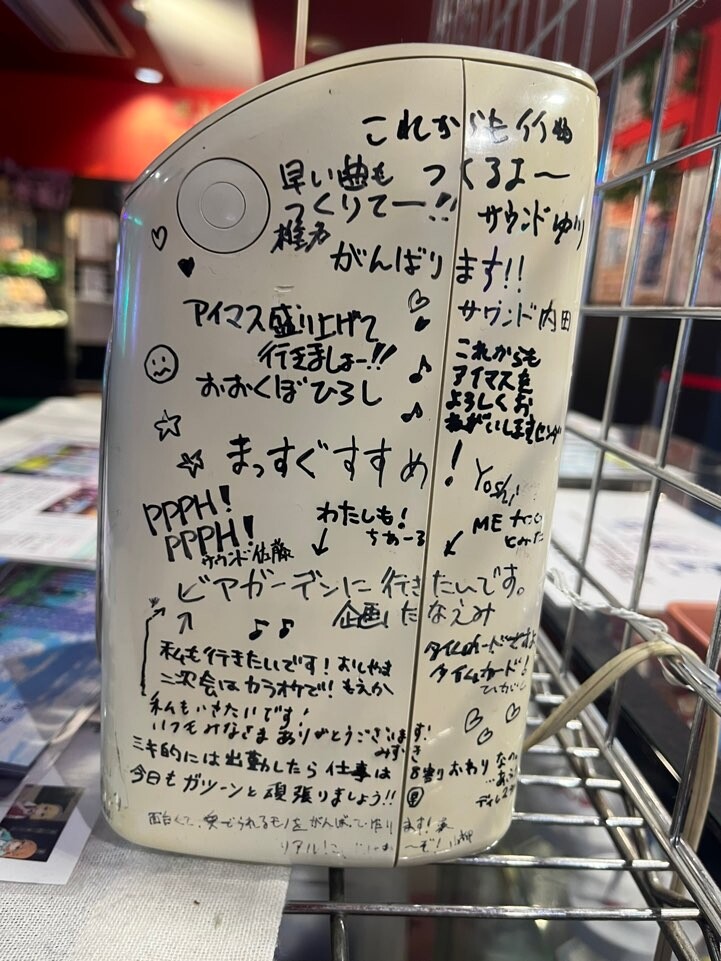 これからもイイ曲
つくるよ〜
サウンドゆり
早い曲も
つくりてー!!
椎名
がんばります!!
サウンド内田
アイマス盛り上げて
行きましょー!!
おおくぼひろし
これからも
アイマスを
よろしくお
ねがいします
まっすぐすすめ!
Yoshi
PPPH!
PPPH!
サウンド佐藤
わたしも!
ちあーる
ME
ビアガーデンに行きたいです。
企画 たなえみ
私も行きたいです! おしやま
二次会はカラオケで! もえか
私もいきたいです!
いつもみなさまありがとうございます!
みずき
タイムカードですよ
タイムカード!
ミキ的には出勤したら仕事は8割りおわりなの
今日もガツーンと頑張りましょう!!
リアル!